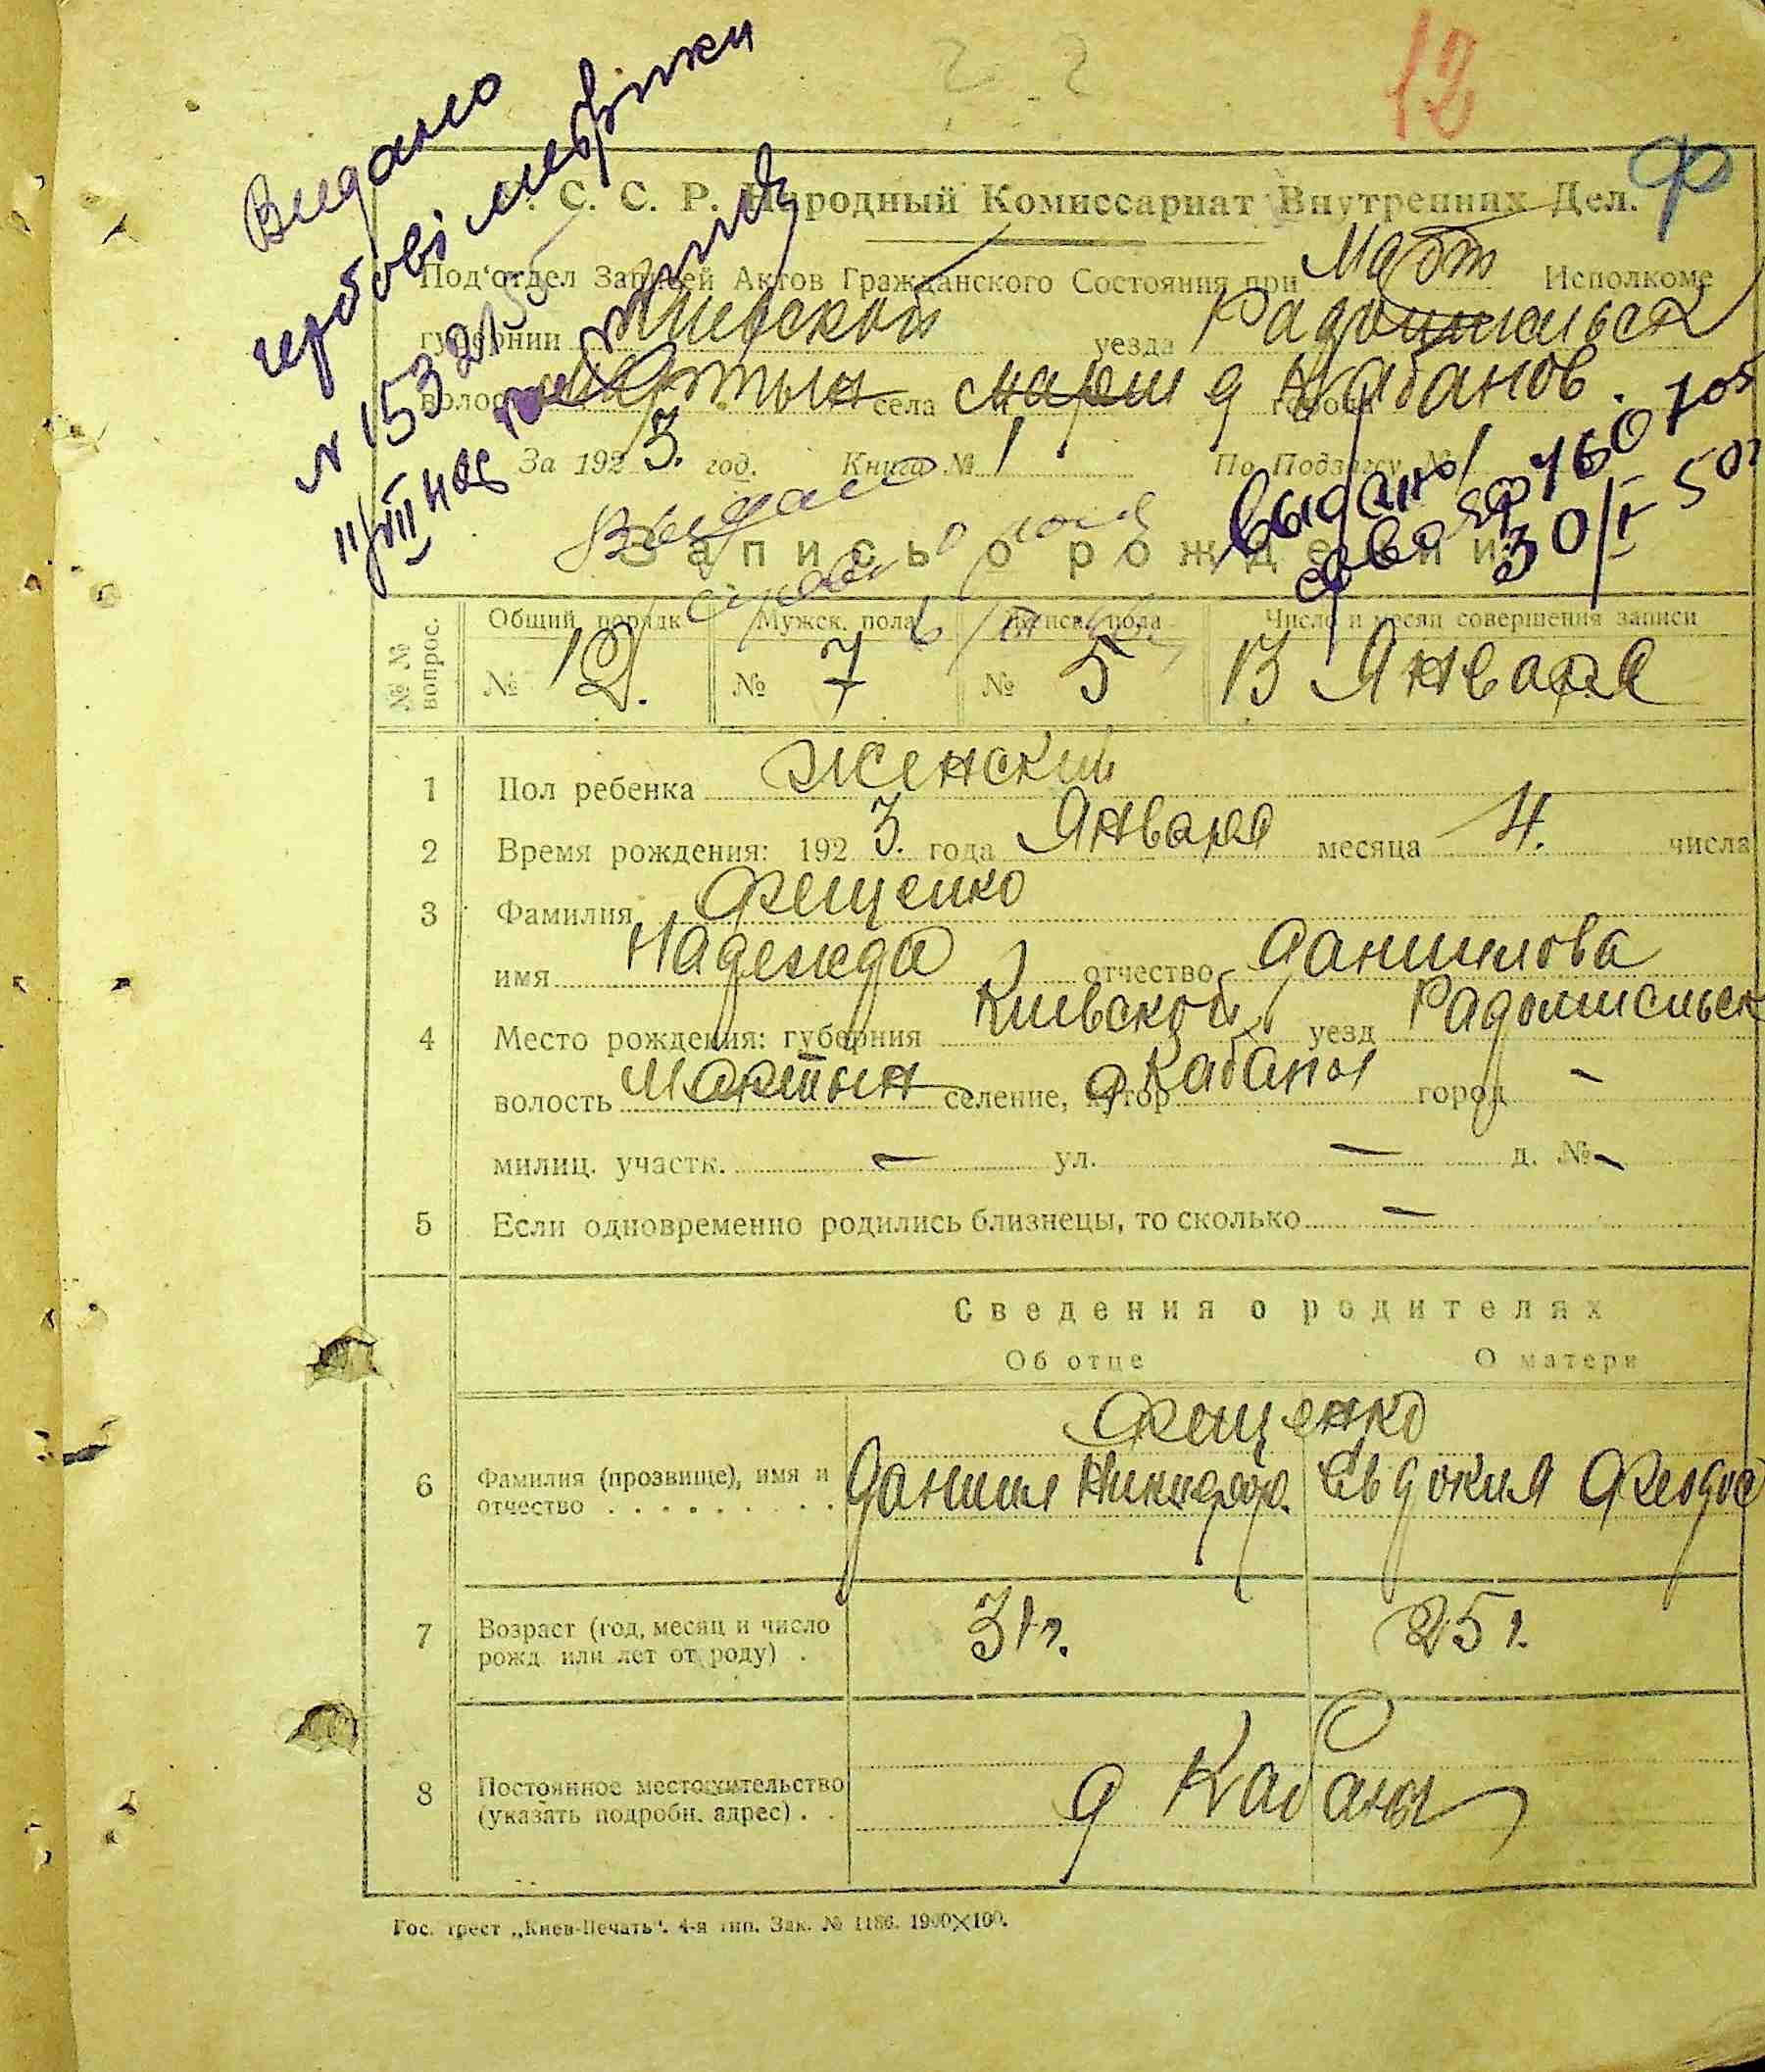 12
Ф
Видано
гербові метрики
С. С. Р. Народный Комиссариат Внутренних Дел.
Под'отдел Записей Актов Гражданского Состояния при Март Исполкоме
губернии Киевской уезда
волос села д Кабанов.
№ 15321
За 1923. год. Книга № 1 По Подзагсу № 1
Видано
Выдано
30/I 50г
Запись о рождении
№№ вопрос.
Общий порядк Мужск. пола Женск. пола Число и месяц совершения записи
№ 12. № 7 № 5 13 Января
1 Пол ребенка Женский
2 Время рождения: 1923. года Января месяца 4. числа
3 Фамилия Фещенко
имя Надежда отчество Данилова
4 Место рождения: губерния Киевской уезд Радомисльск
волость Мартын селение, хутор д Кабаны город -
милиц. участк. - ул. - д. № -
5 Если одновременно родились близнецы, то сколько -
Сведения о родителях
Об отце О матери
Фещенко
6 Фамилия (прозвище), имя и отчество Данил Никифор. Евдокия Феодос
7 Возраст (год, месяц и число рожд. или лет от роду) . 31 г. 25 г.
8 Постоянное местожительство (указать подробн. адрес) . . д Кабаны
Гос. трест „Киев-Печать“. 4-я тип. Зак. № 1186. 1900×100.